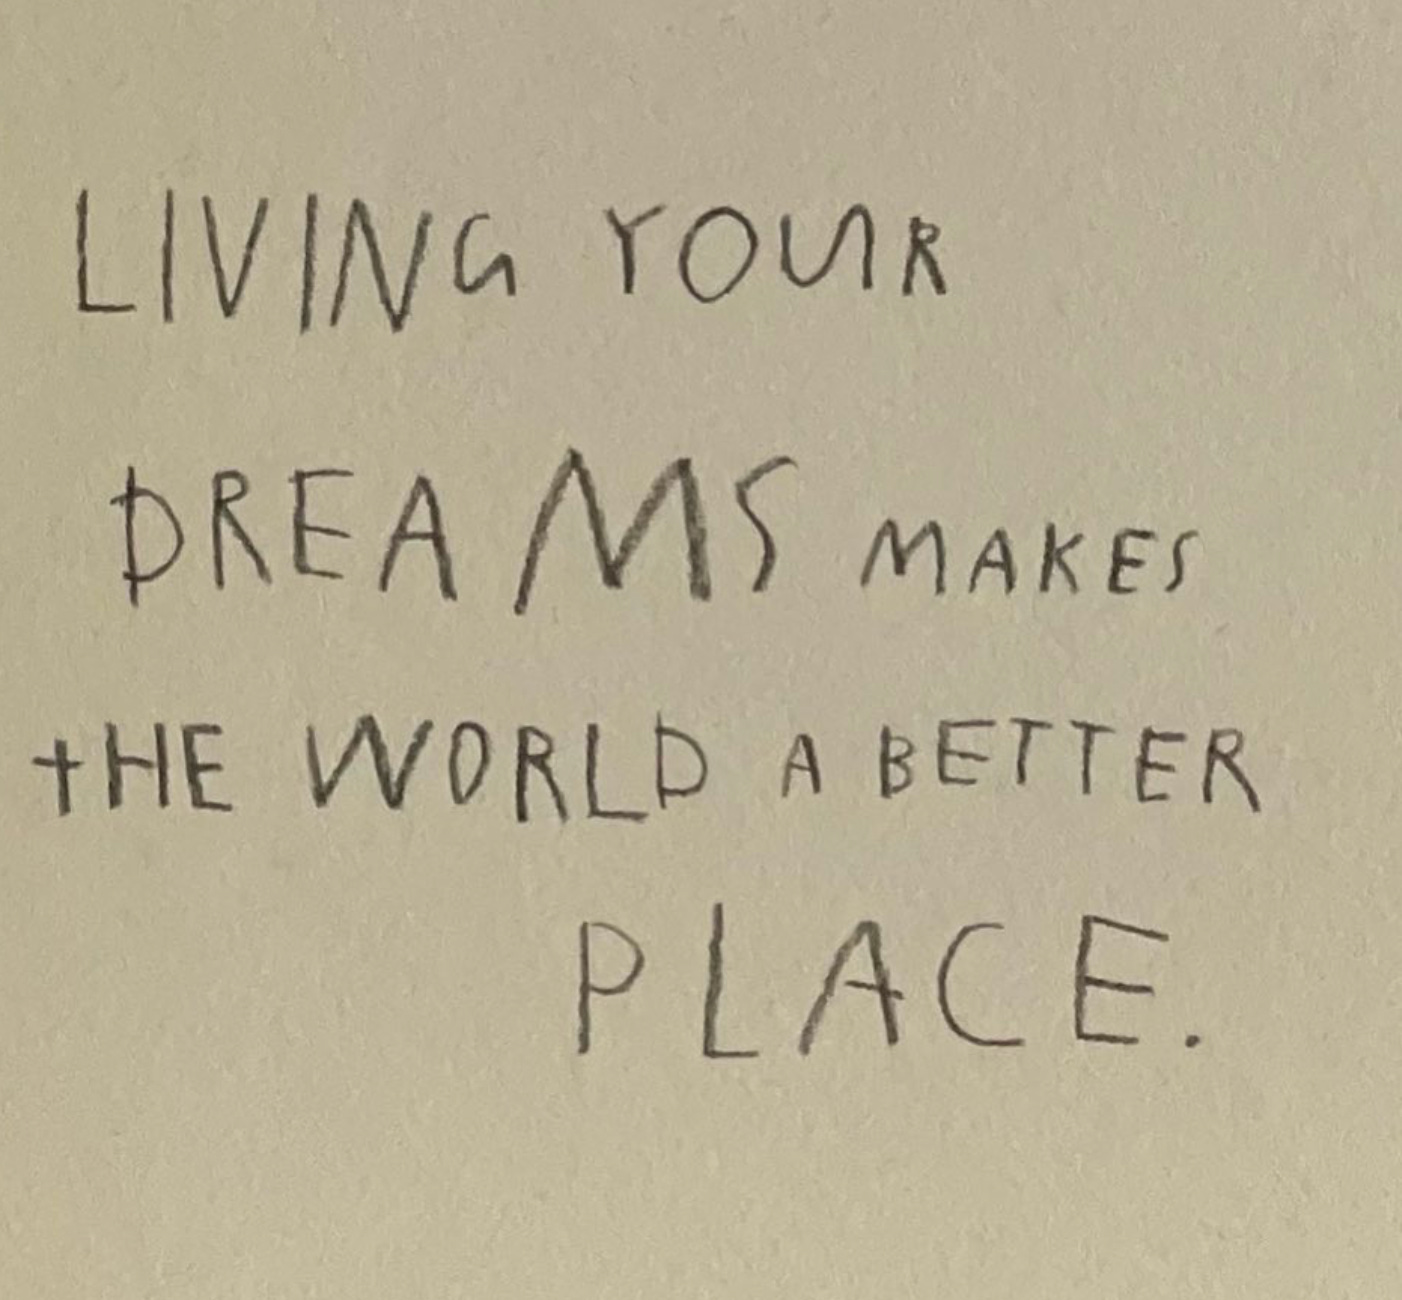 LIVING YOUR
DREAMS MAKES
tHE WORLD A BETTER
PLACE.